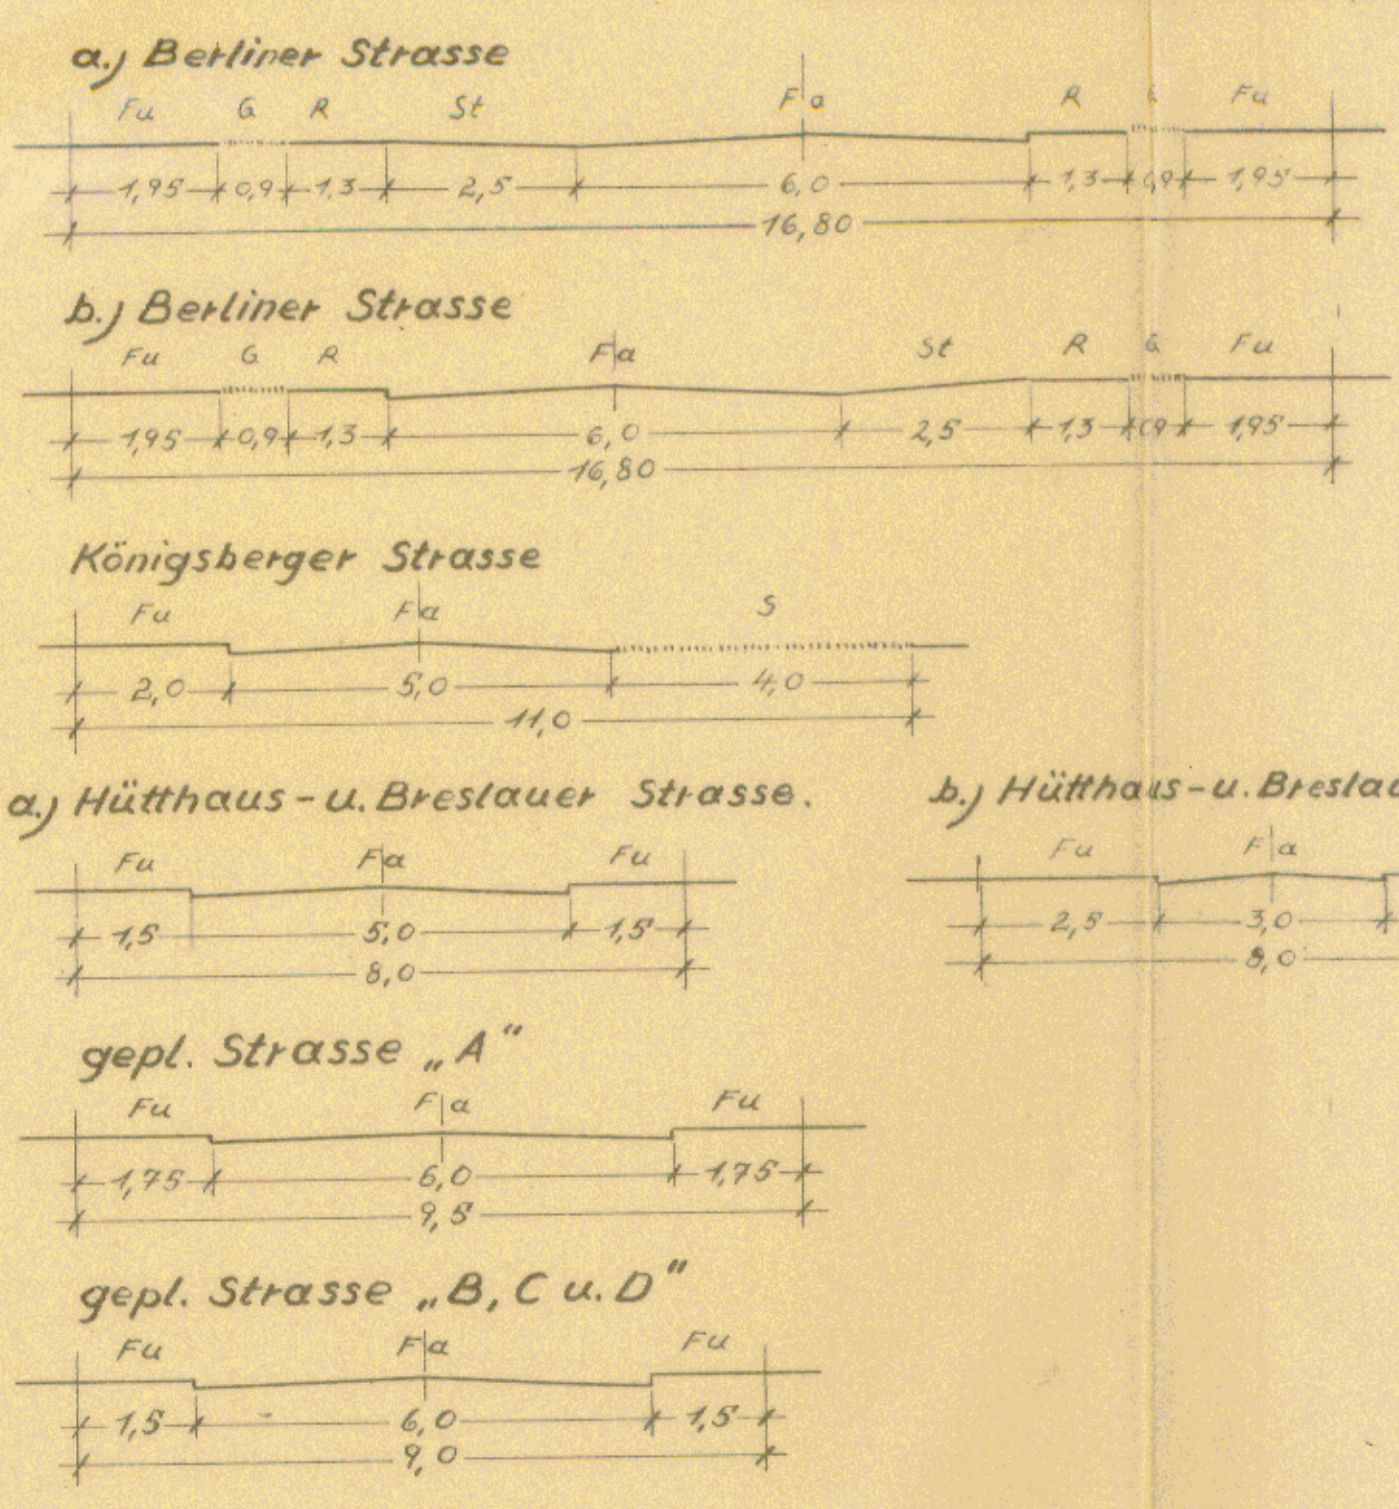 a.) Berliner Strasse
Fu G R St Fa R G Fu
1,95 0,9 1,3 2,5 6,0 1,3 0,9 1,95
16,80
b.) Berliner Strasse
Fu G R Fa St R G Fu
1,95 0,9 1,3 6,0 2,5 1,3 0,9 1,95
16,80
Königsberger Strasse
Fu Fa S
2,0 5,0 4,0
11,0
a.) Hütthaus-u. Breslauer Strasse.
Fu Fa Fu
1,5 5,0 1,5
8,0
b.) Hütthaus-u. Breslau
Fu Fa
2,5 3,0
8,0
gepl. Strasse „A“
Fu Fa Fu
1,75 6,0 1,75
9,5
gepl. Strasse „B, C u. D“
Fu Fa Fu
1,5 6,0 1,5
9,0